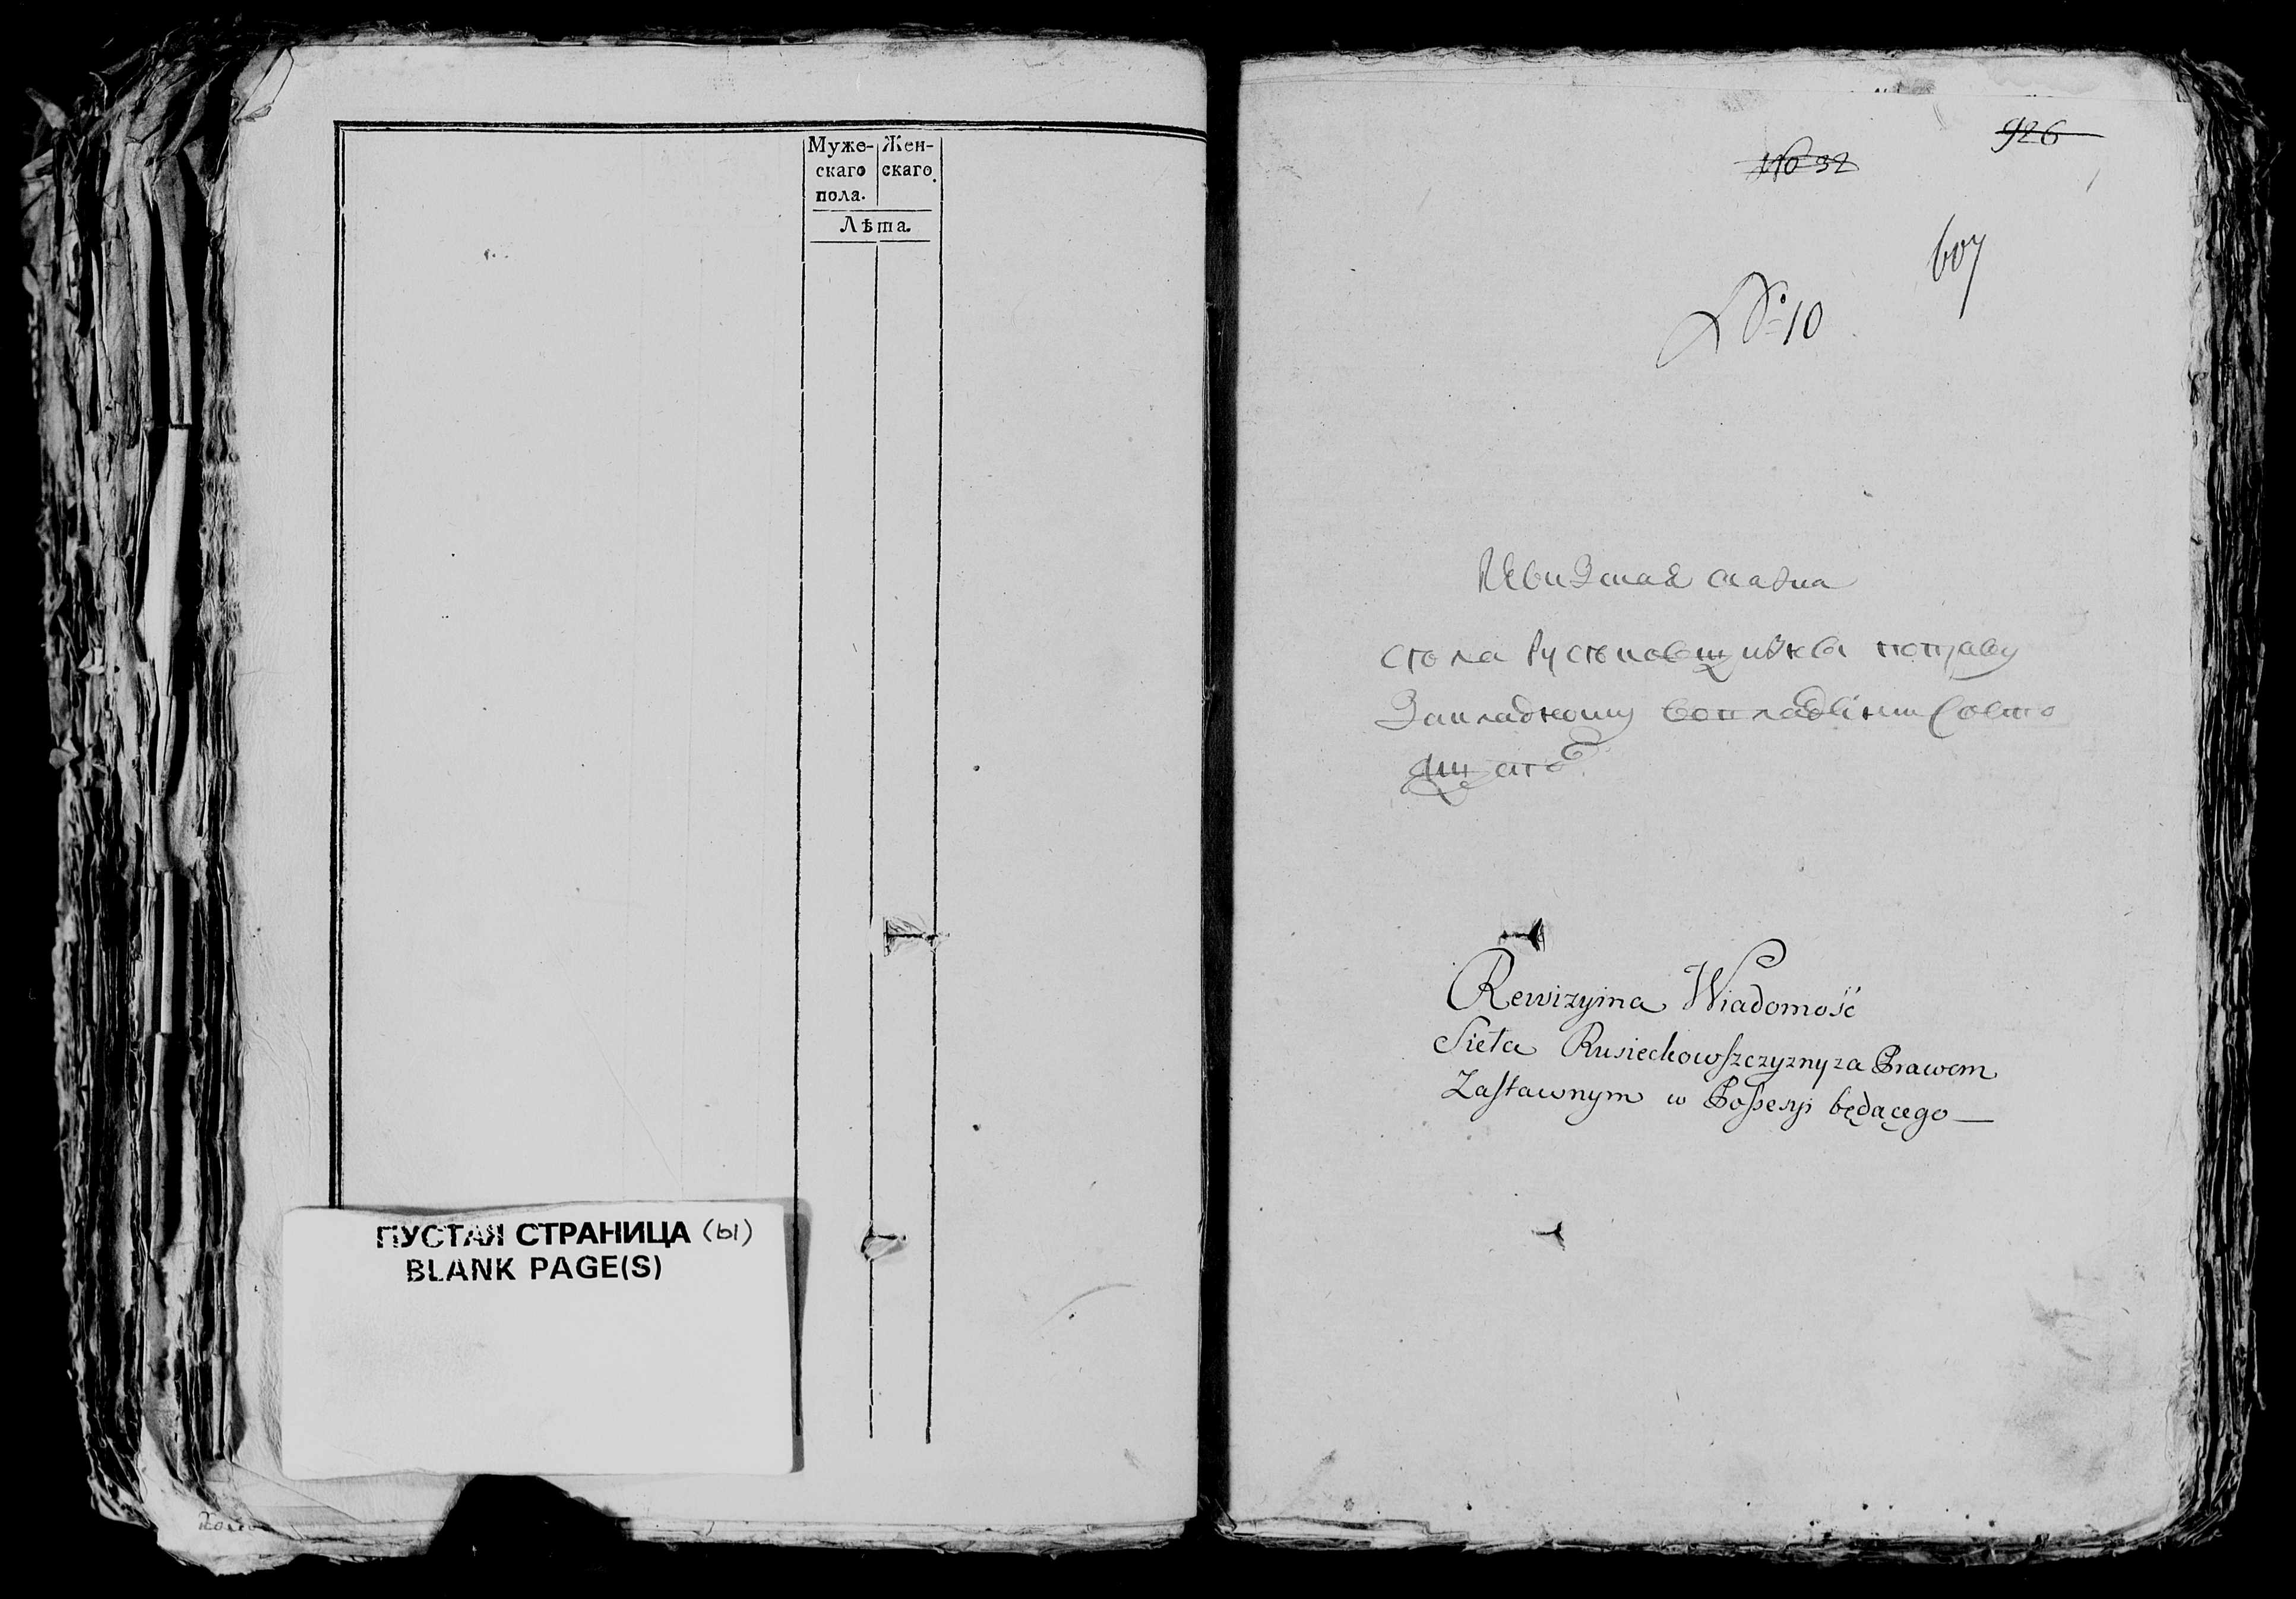 Муже- Жен-
скаго скаго
пола.
Лѣта.
ПУСТАЯ СТРАНИЦА (ы)
BLANK PAGE(S)
926
No 32
607
No 10
Ревизская сказка
села Русѣковщизны по праву
Закладному во владѣнии состо
ящаго
Rewizyina Wiadomość
Sieła Rusieckowszczyzny za Prawem
Zastawnym w Possesyi będącego